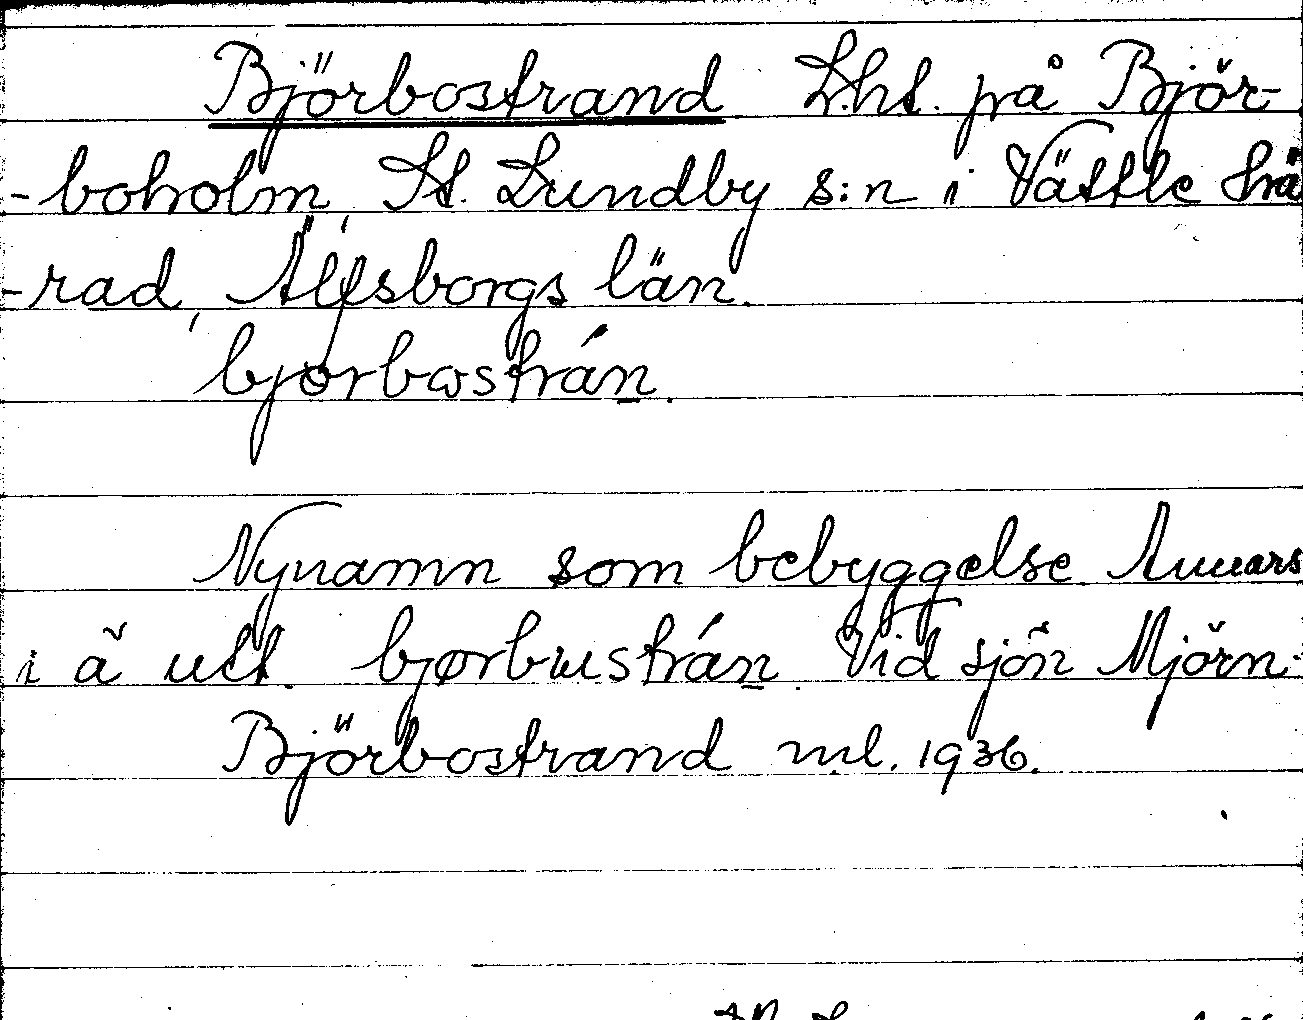 Björbostrand L.ht. på Björ-
-boholm, St. Lundby s:n i Vättle hä
-rad, Älfsborgs län.
bjørbωstrán.
Nynamn som bebyggelse. Annars
i ä utt. bjørbusträn. Vid sjön Mjörn.
Björbostrand ml. 1936.